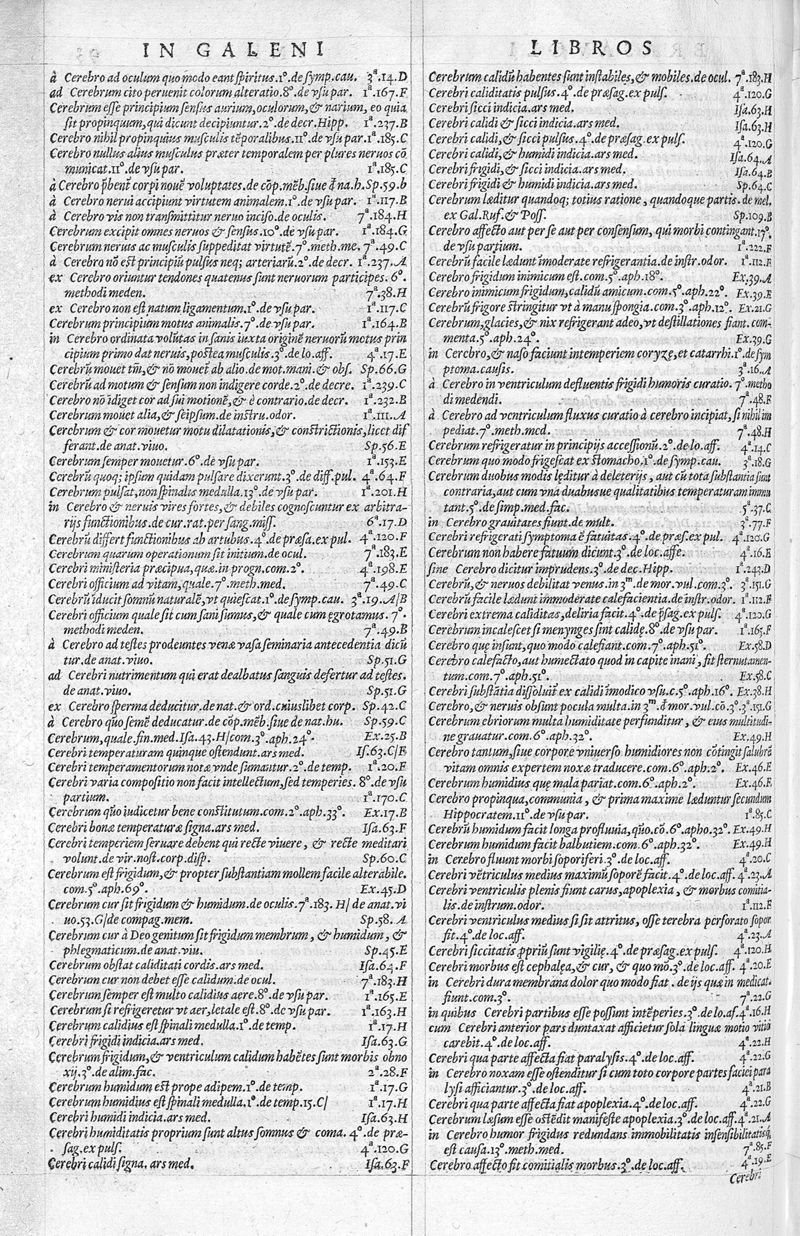 IN GALENI
à Cerebro ad oculum quo modo eant spiritus.1°.de symp.cau. 3ª.14.D
ad Cerebrum cito peruenit colorum alteratio.8°.de vsu par. 1ª.167.F
Cerebrum esse principium sensus aurium,oculorum,& narium, eo quia
sit propinquum, qui dicunt decipiuntur.2°.de decr.Hipp. 1ª.237.B
Cerebro nihil propinquius musculis tēporalibus.11°.de vsu par.1ª.185.C
Cerebro nullus alius musculus præter temporalem per plures neruos cō
municat.11°.de vsu par. 1ª.185.C
à Cerebro p̄beni corpi nouē voluptates.de cōp.mēb.siue đ na.h.Sp.59.b
à Cerebro nerui accipiunt virtutem animalem.1°.de vsu par. 1ª.117.B
à Cerebro vis non transmittitur neruo inciso.de oculis. 7ª.184.H
Cerebrum excipit omnes neruos & sensus.10°.de vsu par. 1ª.184.G
Cerebrum neruis ac musculis suppeditat virtutē.7°.meth.me. 7ª.49.C
à Cerebro nō est principiū pulsus neq; arteriarū.2°.de decr. 1ª.237.A
ex Cerebro oriuntur tendones quatenus sunt neruorum participes. 6°.
methodi meden. 7ª.38.H
ex Cerebro non est natum ligamentum.1°.de vsu par. 1ª.117.C
Cerebrum principium motus animalis.7°.de vsu par. 1ª.164.B
in Cerebro ordinata volūtas in sanis iuxta originē neruorū motus prin
cipium primo dat neruis, postea musculis.3°.de lo.aff. 4ª.17.E
Cerebrū mouet tm̄,& nō mouet ab alio.de mot.mani.& obs. Sp.66.G
Cerebrū ad motum & sensum non indigere corde.2°.de decre. 1ª.239.C
Cerebrū nō idiget cor ad sui motionē,& è contrario.de decr. 1ª.232.B
Cerebrum mouet alia,& seipsum.de instru.odor. 1ª.111.A
Cerebrum & cor mouetur motu dilatationis,& constrictionis,licet dif
ferant.de anat.viuo. Sp.56.E
Cerebrum semper mouetur.6°.de vsu par. 1ª.153.E
Cerebrū quoq; ipsum quidam pulsare dixerunt.3°.de diff.pul. 4ª.64.F
Cerebrum pulsat,non spinalis medulla.13°.de vsu par. 1ª.201.H
in Cerebro & neruis vires fortes,& debiles cognoscuntur ex arbitra-
rijs functionibus.de cur.rat.per sang.miss. 6ª.17.D
Cerebrū differt functionibus ab artubus.4°.de præsa.ex pul. 4ª.120.F
Cerebrum quarum operationum sit initium.de ocul. 7ª.183.E
Cerebri ministeria præcipua,quæ.in progn.com.2°. 4ª.198.E
Cerebri officium ad vitam,quale.7°.meth.med. 7ª.49.C
Cerebrū iducit somnū naturalē,vt quiescat.1°.de symp.cau. 3ª.19.A/B
Cerebri officium quale sit cum sani sumus,& quale cum ęgrotamus. 7°.
methodi meden. 7ª.49.B
à Cerebro ad testes prodeuntes venæ vasa seminaria antecedentia dicū
tur.de anat.viuo. Sp.51.G
ad Cerebri nutrimentum qui erat dealbatus sanguis defertur ad testes.
de anat.viuo. Sp.51.G
ex Cerebro sperma deducitur.de nat.& ord.cuiuslibet corp. Sp.42.C
à Cerebro quo semē deducatur.de cōp.mēb.siue de nat.hu. Sp.59.C
Cerebrum,quale.sin.med.Isa.43.H/com.3°.aph.24°. Ex.25.B
Cerebri temperaturam quinque ostendunt.ars med. Is.63.C/E
Cerebri temperamentorum notæ vnde sumantur.2°.de temp. 1ª.20.F
Cerebri varia compositio non facit intellectum,sed temperies. 8°.de vsu
partium. 1ª.170.C
Cerebrum quō iudicetur bene constitutum.com.2°.aph.33°. Ex.17.B
Cerebri bonæ temperaturæ signa.ars med. Isa.63.F
Cerebri temperiem seruare debent qui recte viuere, & recte meditari
volunt.de vir.nost.corp.disp. Sp.60.C
Cerebrum est frigidum,& propter substantiam mollem facile alterabile.
com.5°.aph.69°. Ex.45.D
Cerebrum cur sit frigidum & humidum.de oculis.7ª.183.H/ de anat.vi
uo.53.G/de compag.mem. Sp.58.A
Cerebrum cur à Deo genitum sit frigidum membrum, & humidum, &
phlegmaticum.de anat.viu. Sp.45.E
Cerebrum obstat caliditati cordis.ars med. Isa.64.F
Cerebrum cur non debet esse calidum.de ocul. 7ª.183.H
Cerebrum semper est multo calidius aere.8°.de vsu par. 1ª.165.E
Cerebrum si refrigeretur vt aer,letale est.8°.de vsu par. 1ª.163.H
Cerebrum calidius est spinali medulla.1°.de temp. 1ª.17.H
Cerebri frigidi indicia.ars med. Isa.63.G
Cerebrum frigidum,& ventriculum calidum habētes sunt morbis obno
xij.3°.de alim.fac. 2ª.28.F
Cerebrum humidum est prope adipem.1°.de temp. 1ª.17.G
Cerebrum humidius est spinali medulla.1°.de temp.15.C/ 1ª.17.H
Cerebri humidi indicia.ars med. Isa.63.H
Cerebri humiditatis proprium sunt altus somnus & coma. 4°.de præ-
sag.ex puls. 4ª.120.G
Cerebri calidi signa. ars med. Isa.63.F
LIBROS
Cerebrum calidū habentes sunt instabiles,& mobiles.de ocul. 7ª.183.H
Cerebri caliditatis pulsus.4°.de præsag.ex puls. 4ª.120.G
Cerebri sicci indicia.ars med. Isa.63.H
Cerebri calidi & sicci indicia.ars med. Isa.63.H
Cerebri calidi,& sicci pulsus.4°.de præsag.ex puls. 4ª.120.G
Cerebri calidi,& humidi indicia.ars med. Isa.64.A
Cerebri frigidi,& sicci indicia.ars med. Isa.64.B
Cerebri frigidi & humidi indicia.ars med. Sp.64.C
Cerebrum læditur quandoq; totius ratione , quandoque partis.de mel.
ex Gal.Ruf.& Poss. Sp.109.B
Cerebro affecto aut per se aut per consensum, qui morbi contingant.17°.
de vsu partium. 1ª.222.F
Cerebrū facile lædunt imoderate refrigerantia.de instr.odor. 1ª.112.F
Cerebro frigidum inimicum est.com.5°.aph.18°. Ex.39.A
Cerebro inimicum frigidum,calidū amicum.com.5°.aph.22°. Ex.39.E
Cerebrū frigore stringitur vt à manu spongia.com.3°.aph.12°. Ex.21.G
Cerebrum,glacies,& nix refrigerant adeo,vt destillationes fiant.com-
menta.5°.aph.24°. Ex.39.G
in Cerebro,& naso faciunt intemperiem coryzę,et catarrhi.1°.de sym
ptoma.causis. 3ª.16.A
à Cerebro in ventriculum defluentis frigidi humoris curatio.7°.metho
di medendi. 7ª.48.F
à Cerebro ad ventriculum fluxus curatio à cerebro incipiat, si nihil im
pediat.7°.meth.med. 7ª.48.H
Cerebrum refrigeratur in principijs accessionū.2°.de lo.aff. 4ª.14.C
Cerebrum quo modo frigescat ex stomacho.1°.de symp.cau. 3ª.18.G
Cerebrum duobus modis lęditur à deleterijs, aut cū tota substantia sunt
contraria,aut cum vna duabusue qualitatibus temperaturam immu
tant.5°.de simp.med.fac. 5ª.37.C
in Cerebro grauitates fiunt.de mult. 3ª.77.F
Cerebri refrigerati symptoma ē fatuitas.4°.de præs.ex pul. 4ª.120.G
Cerebrum non habere fatuum dicunt.3°.de loc.affe. 4ª.16.E
sine Cerebro dicitur imprudens.3°.de dec.Hipp. 1ª.243.D
Cerebrū,& neruos debilitat venus.in 3ᵐ.de mor.vul.com.3°. 3ª.151.G
Cerebrū facile lædunt immoderate calefacientia.de instr.odor. 1ª.112.F
Cerebri extrema caliditas,deliria facit.4°.de p̄sag.ex puls. 4ª.120.G
Cerebrum incalescet si menynges sint calidę.8°.de vsu par. 1ª.165.F
Cerebro quę insunt,quo modo calefiant.com.7°.aph.51°. Ex.58.D
Cerebro calefacto,aut humectato quod in capite inani, fit sternutamen-
tum.com.7°.aph.51°. Ex.58.C
Cerebri substātia dissoluit̄ ex calidi imodico vsu.c.5°.aph.16°. Ex.38.H
Cerebro,& neruis obsunt pocula multa.in 3ᵐ.đ mor.vul.cō.3°.3ª.151.G
Cerebrum ebriorum multa humiditate perfunditur , & eius multitudi-
ne grauatur.com.6°.aph.32°. Ex.49.H
Cerebro tantum,siue corpore vniuerso humidiores non cōtingit salubrē
vitam omnis expertem noxæ traducere.com.6°.aph.2°. Ex.46.E
Cerebrum humidius quę mala pariat.com.6°.aph.2°. Ex.46.E
Cerebro propinqua,communia , & prima maxime læduntur secundum
Hippocratem.11°.de vsu par. 1ª.85.C
Cerebrū humidum facit longa profluuia,quō.cō.6°.apho.32°. Ex.49.H
Cerebrum humidum facit balbutiem.com.6°.aph.32°. Ex.49.H
in Cerebro fluunt morbi soporiferi.3°.de loc.aff. 4ª.20.C
Cerebri vētriculus medius maximū soporē facit.4°.de loc.aff. 4ª.23.A
Cerebri ventriculis plenis fiunt carus,apoplexia , & morbus comitia-
lis.de instrum.odor. 1ª.112.E
Cerebri ventriculus medius si sit attritus, osse terebra perforato sopor
fit.4°.de loc.aff. 4ª.23.A
Cerebri siccitatis p̄priū sunt vigilię.4°.de præsag.ex puls. 4ª.120.H
Cerebri morbus est cephalęa,& cur, & quo mō.3°.de loc.aff. 4ª.20.E
in Cerebri dura membrana dolor quo modo fiat . de ijs quæ in medicat.
fiunt.com.3°. 7ª.22.G
in quibus Cerebri partibus esse possunt intēperies.3°.de lo.af.4ª.16.H
cum Cerebri anterior pars duntaxat afficietur sola linguæ motio vitio
carebit.4°.de loc.aff. 4ª.22.H
Cerebri qua parte affecta fiat paralysis.4°.de loc.aff. 4ª.22.G
in Cerebro noxam esse ostenditur si cum toto corpore partes faciei para
lysi afficiantur.3°.de loc.aff. 4ª.21.B
Cerebri qua parte affecta fiat apoplexia.4°.de loc.aff. 4ª.22.G
Cerebrum læsum esse ostēdit manifeste apoplexia.3°.de loc.aff.4ª.21.A
in Cerebro humor frigidus redundans immobilitatis insensibilitatisq;
est causa.13°.meth.med. 7ª.85.F
Cerebro affecto fit comitialis morbus.3°.de loc.aff. 4ª.19.E
Cerebri